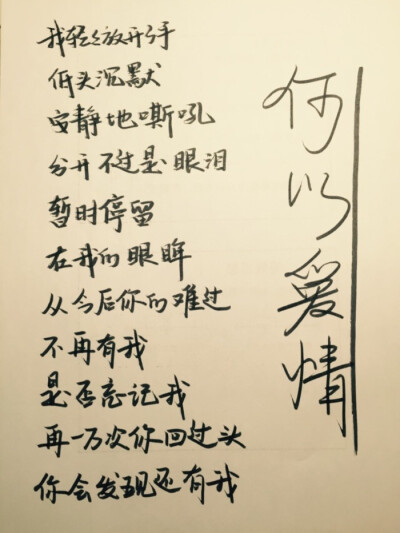 我轻轻放开了手
低头沉默
安静地嘶吼
分开不过是眼泪
暂时停留
在我的眼眸
从今后你的难过
不再有我
是否忘记我
再一万次你回过头
你会发现还有我
何以爱情